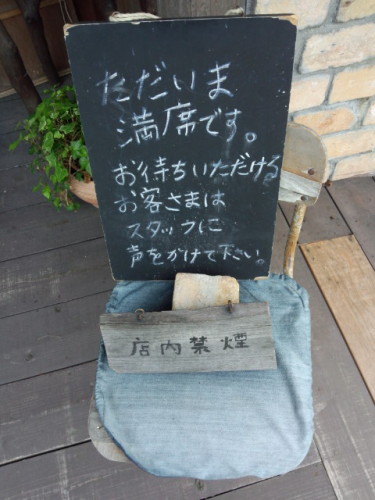 ただいま
満席です。
お待ちいただける
お客さまは
スタッフに
声をかけて下さい。
店内禁煙